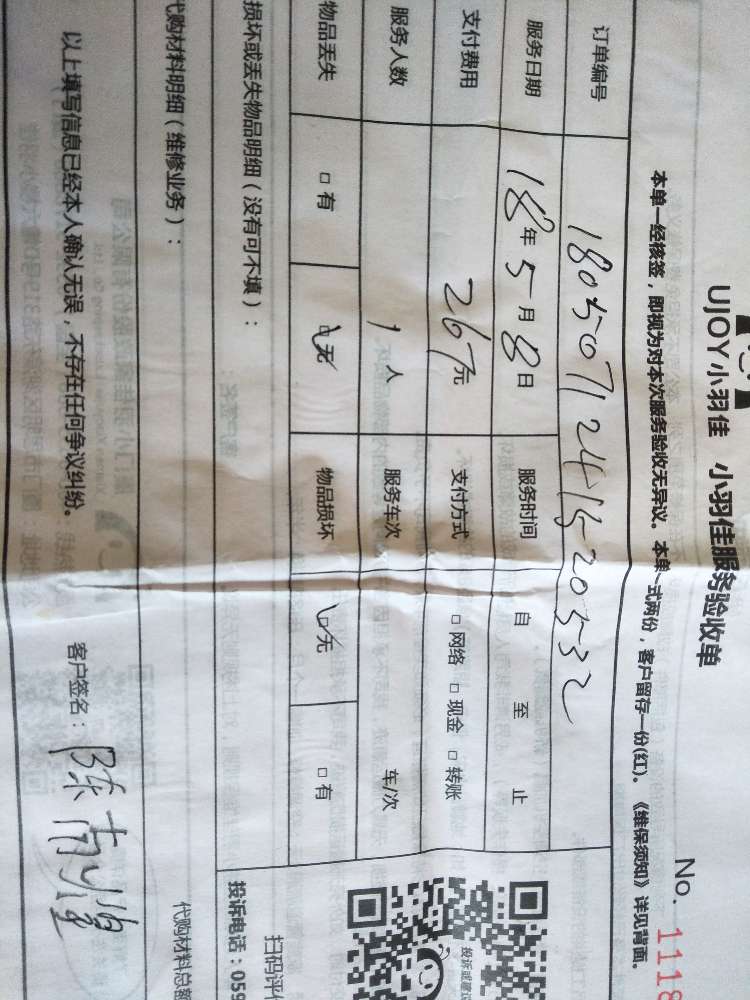 UJOY小羽佳 小羽佳服务验收单
No. 1118
本单一经核签，即视为对本次服务验收无异议。本单一式两份，客户留存一份(红)。《维保须知》详见背面。
订单编号 18050712415205332
服务日期 18年5月8日 服务时间 自 至 止
支付费用 267元 支付方式 □网络 □现金 □转账
服务人数 1人 服务车次 车/次
物品丢失 □有 ☑无 物品损坏 ☑无 □有
投诉或建议
扫码评
损坏或丢失物品明细（没有可不填）：
投诉电话：059
代购材料明细（维修业务）：
代购材料总额
以上填写信息已经本人确认无误，不存在任何争议纠纷。 客户签名：